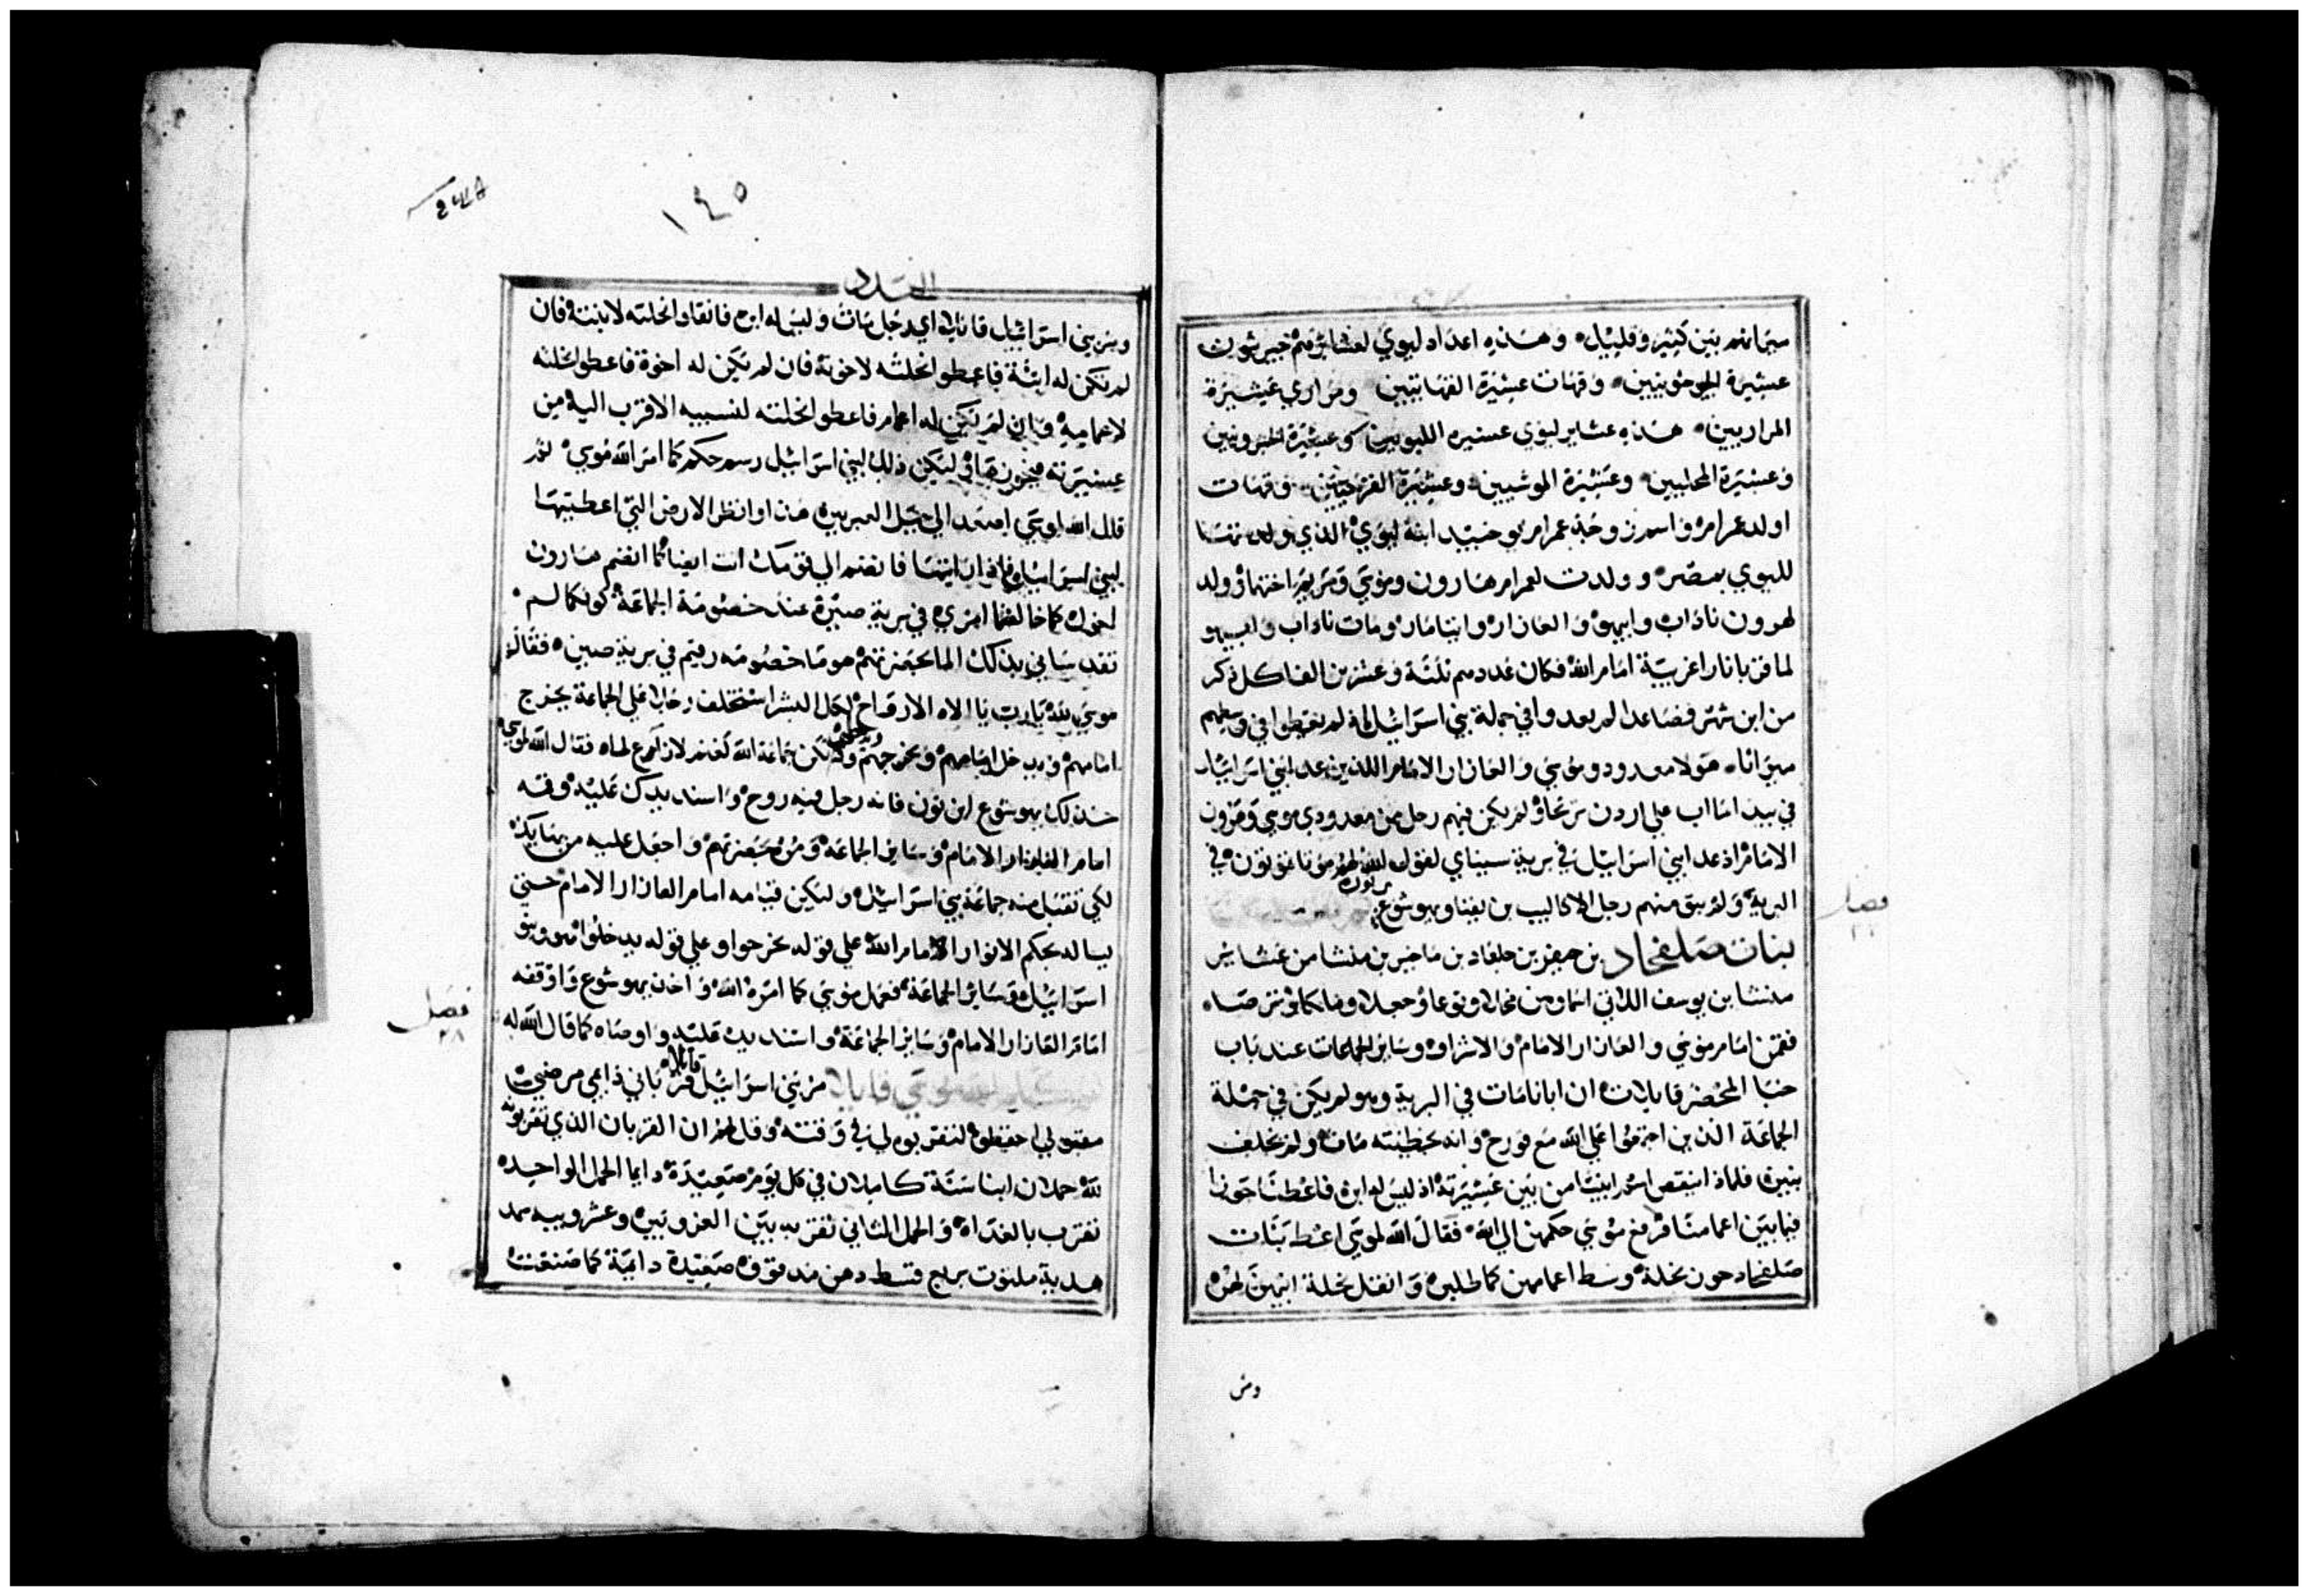 سهمانهم بين كثير وقليل وهذه اعداد ليوي لعشايرهم جرشون
عشيرة الجرشونيين وقهات عشيرة القهاتيين ومراري عشيرة
المراريين هذه عشاير ليوي عشيره اللبونيين وعشيرة الحبرونيين
وعشيرة المحليين وعشيرة الموشيين وعشيرة القرحيين وقهات
اولد عمرام واسم زوجة عمرام يوخبيد ابنة ليوي الذي ولد تها
لليوي بمصر وولدت لعمرام هارون وموسي ومريم اختهما وولد
لهرون ناداب وابيهو والعازار وايتامار ومات ناداب وابيهو
لما قربا نارا غريبة امام الله فكان عددهم ثلثة وعشرين الفا كل ذكر
من ابن شهر فصاعدا لم يعدوا في جملة بني اسرائيل لم يعطوا في وسطهم
ميراثا هولا معدودو موسي والعازار الامام اللذين عدا بني اسرائيل
في بيدا ماب علي اردن يرحا ولم يكن فيهم رجل من معدودي موسي وهرون
الامام اذ عدا بني اسرائيل في برية سيناي لقول الله لهم موتا يموتون في
البرية ولم يبق منهم رجل الا كاليب بن يفنا ويهوشوع
بن نون
فصل
بنات صلفحاد بن حيفر بن جلعاد بن ماخير بن منشا من عشاير
منشا بن يوسف اللاتي اسماوهن محلا ونوعا وحجلا وملكا وترصاه
فقمن امام موسي والعازار الامام والاشراف وساير الجماعات عند باب
خبا المحضر قايلات ان ابانا مات في البرية وهو لم يكن في جملة
الجماعة الذين اجتمعوا علي الله مع قورح وانه بخطيته مات ولم يخلف
بنين فلماذا ينتقص اسم ابينا من بين عشيرته اذ ليس له ابن فاعطنا حوزا
فيما بين اعمامنا فرفع موسي حكمهن الي الله فقال الله لموسي اعط بنات
صلفحاد حوز نحلة وسط اعمامهن كما طلبن وانقل نحلة ابيهن لهن
ومر
١٤٥
العدد
ومر بني اسرائيل قايلا اي رجل مات وليس له ابن فانقلوا نحلته لابنته فان
لم تكن له ابنة فاعطوا نحلته لاخوته فان لم تكن له اخوة فاعطوا نحلته
لاعماميه وان لم يكن له اعمام فاعطوا نحلته لنسيبه الاقرب اليه من
عشيرته فيحوزها وليكن ذلك لبني اسرائيل رسم حكم كما امر الله موسي ثم
قال الله لموسي اصعد الي جبل العبريين هذا وانظر الارض التي اعطيتها
لبني اسرائيل فاذا رايتها فانضم الي قومك انت ايضا كما انضم هارون
اخوك كما خالفتما امري في برية صين عند خصومة الجماعة كونكما لم
تقدساني بذلك الما بحضرتهم هو ما خصومه رقيم في برية صين فقال
موسي لله يا رب يا الاه الارواح لكل البشر استخلف رجلا علي الجماعة يخرج
امامهم ويدخل امامهم ويخرجهم ولا تكن جماعة الله كغنم لا راعي لها فقال الله لموسي
خذ لك يهوشوع ابن نون فانه رجل فيه روح واسند يدك عليه وقفه
امام العازار الامام وساير الجماعة ومره بحضرتهم واجعل عليه من بهايك
لكي تقبل منه جماعة بني اسرائيل وليكن قيامه امام العازار الامام حتي
يساله بحكم الانوار امام الله علي قوله يخرجوا وعلي قوله يدخلوا هو وبنو
اسرائيل وساير الجماعة ففعل موسي كما امره الله واخذ يهوشوع واوقفه
امام العازار الامام وساير الجماعة واسند يديه عليه واوصاه كما قال الله له
فصل
٢٨
قايلا
مر بني اسرائيل قرباني ذايعي مرضي
مقبولي احفظوا لتقربوه لي في وقته وقل لهم ان القربان الذي تقربونه
لله حملان ابنا سنة كاملان في كل يوم صعيدة دايما الحمل الواحد
تقرب بالغداة والحمل الثاني تقربه بين الغروبين وعشر ويبه سمد
هدية ملتوت بربع قسط دهن مدقوق صعيدة دايمة كما صنعت